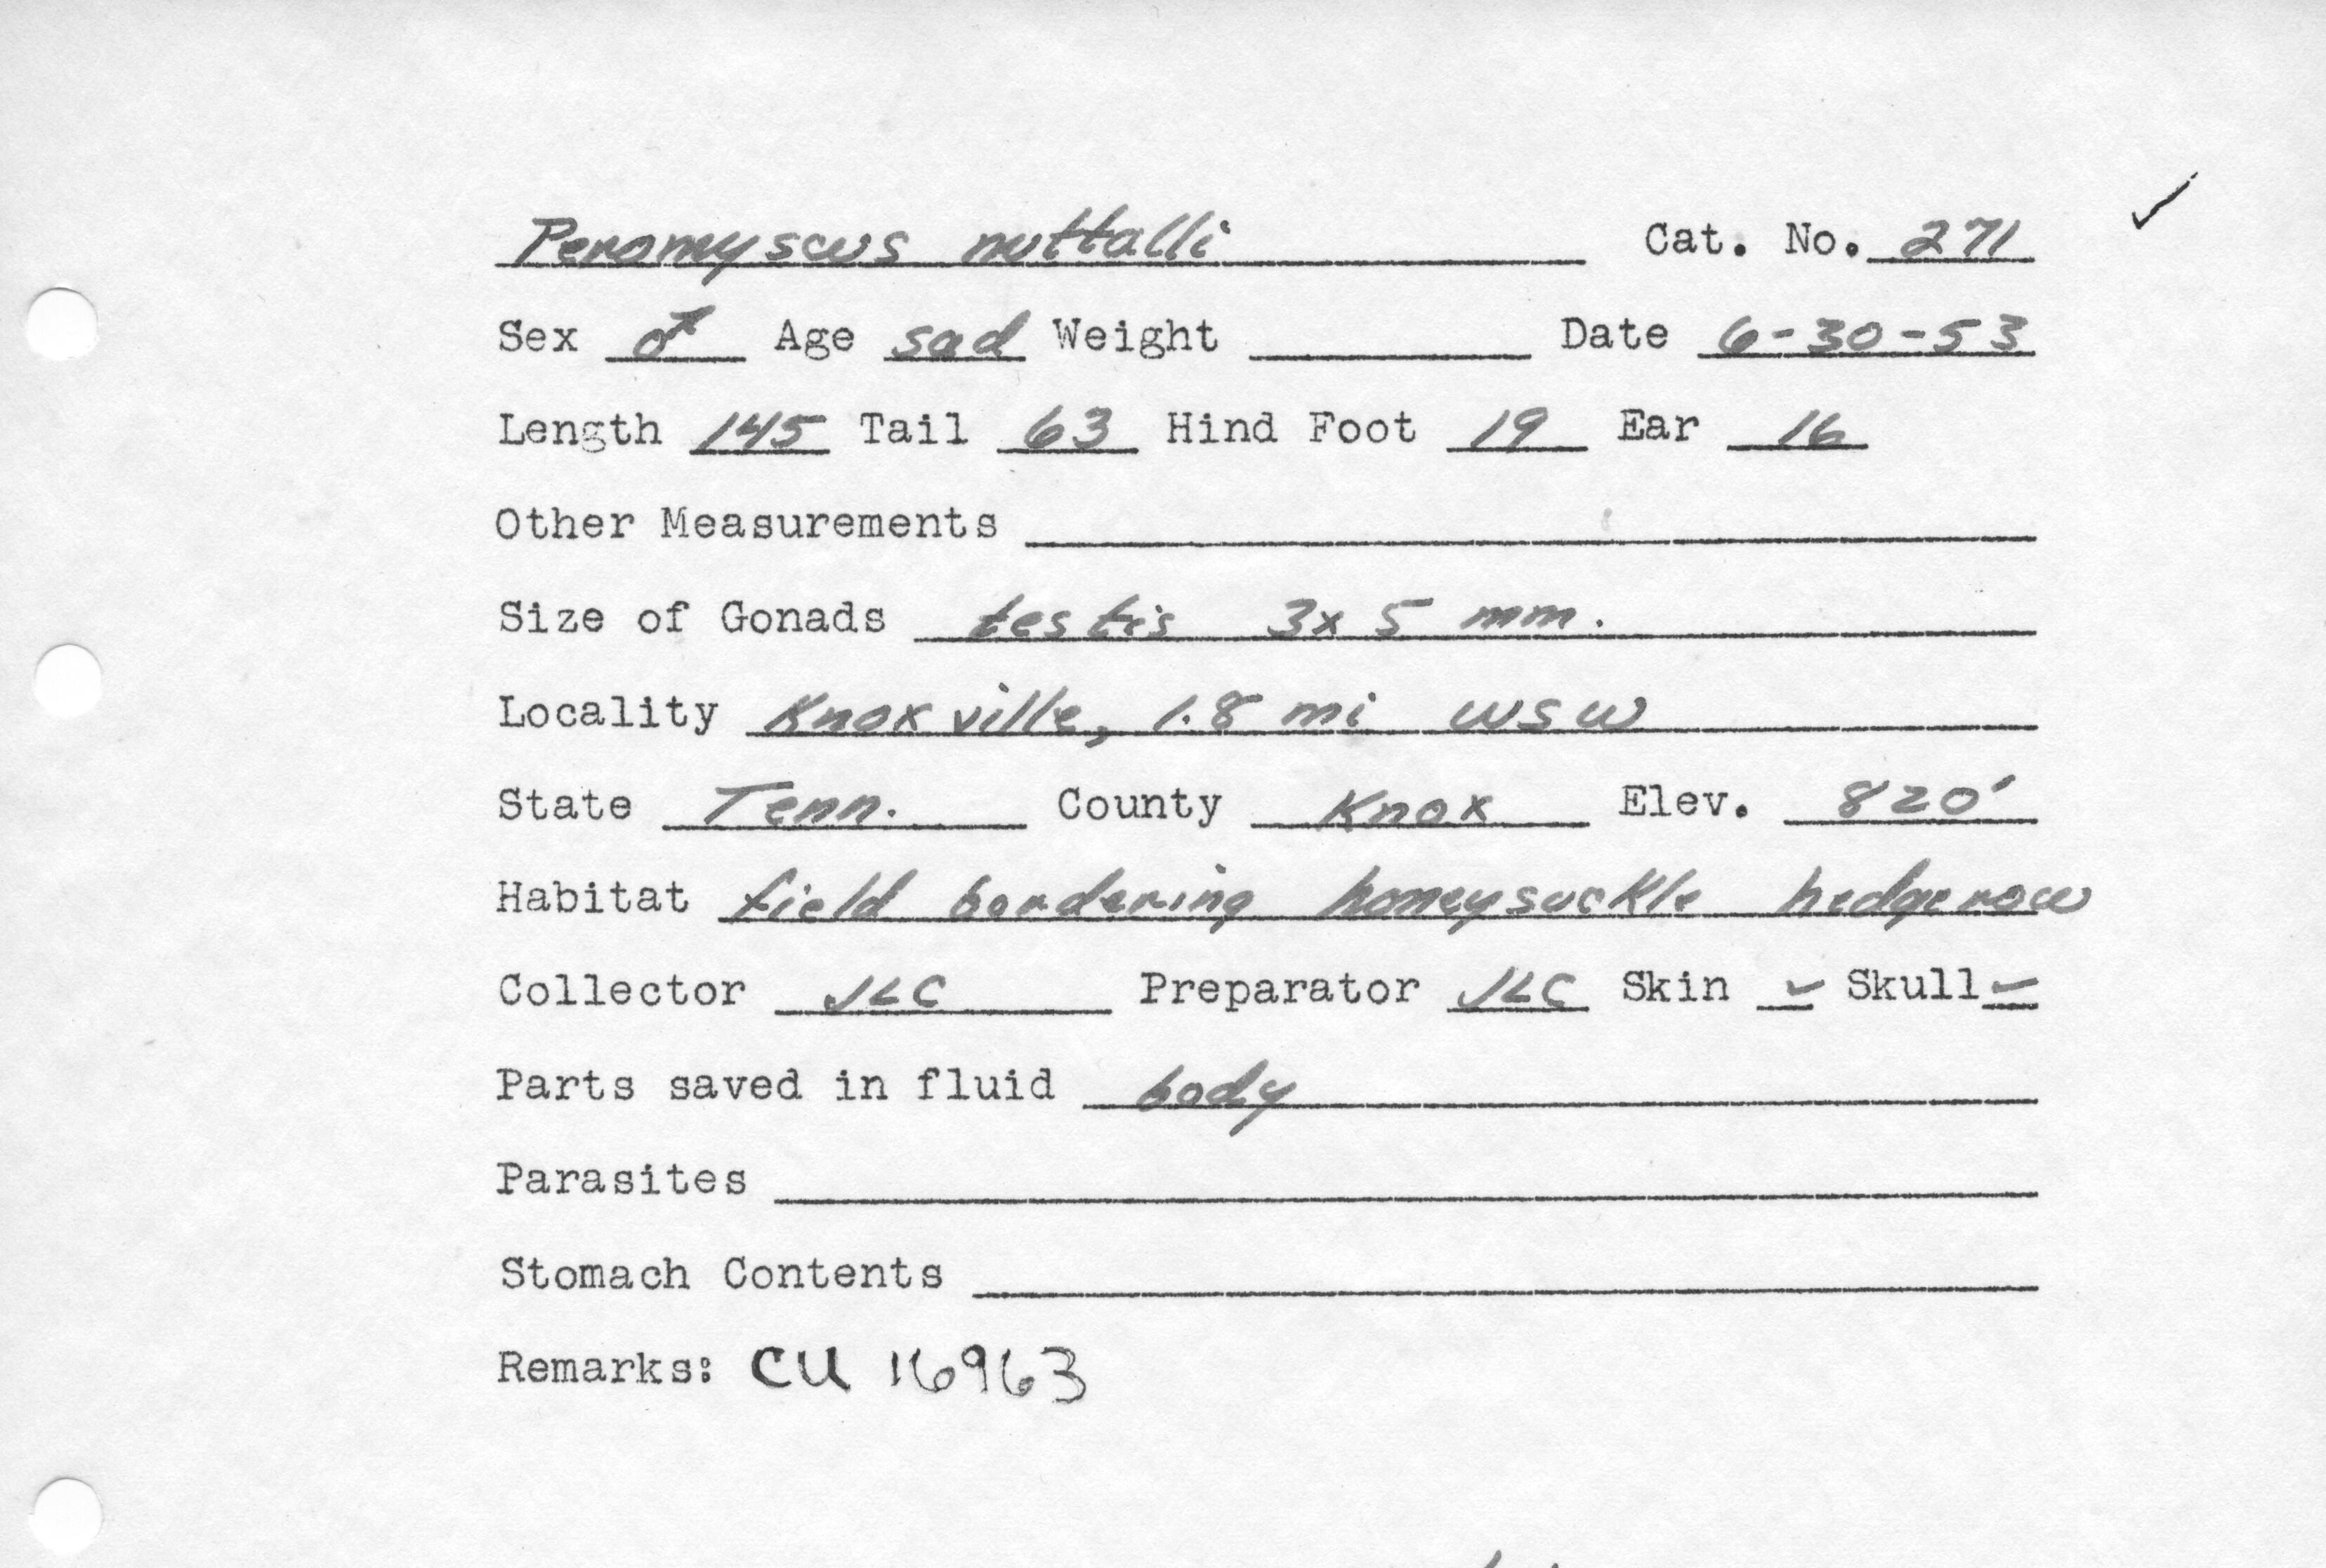 Peromyscus nuttalli Cat. No. 271 ✓
Sex ♂ Age sad Weight Date 6-30-53
Length 145 Tail 63 Hind Foot 19 Ear 16
Other Measurements
Size of Gonads testis 3x5 mm.
Locality Knoxville, 1.8 mi WSW
State Tenn. County Knox Elev. 820'
Habitat field bordering honeysuckle hedgerow
Collector JLC Preparator JLC Skin ✓ Skull ✓
Parts saved in fluid body
Parasites
Stomach Contents
Remarks: CU 16963